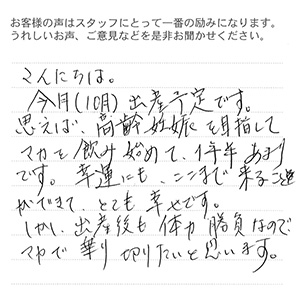 お客様の声はスタッフにとって一番の励みになります。
うれしいお声、ご意見などを是非お聞かせください。
こんにちは。
今月(10月)出産予定です。
思えば、高齢妊娠を目指して
マカを飲み始めて、1年半あまり
です。幸運にも、ここまで来ること
ができて、とても幸せです。
しかし、出産後も体力勝負なので
マカで乗り切りたいと思います。